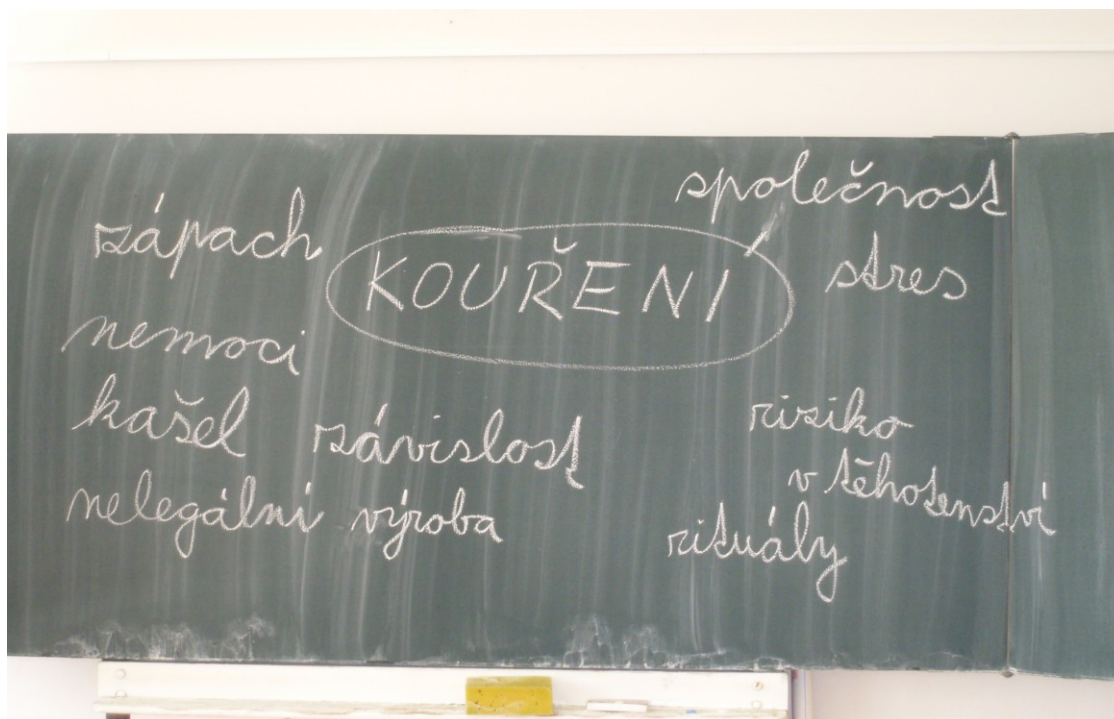 společnost
zápach
KOUŘENÍ
stres
nemoci
kašel
závislost
riziko
v těhotenství
nelegální výroba
rituály